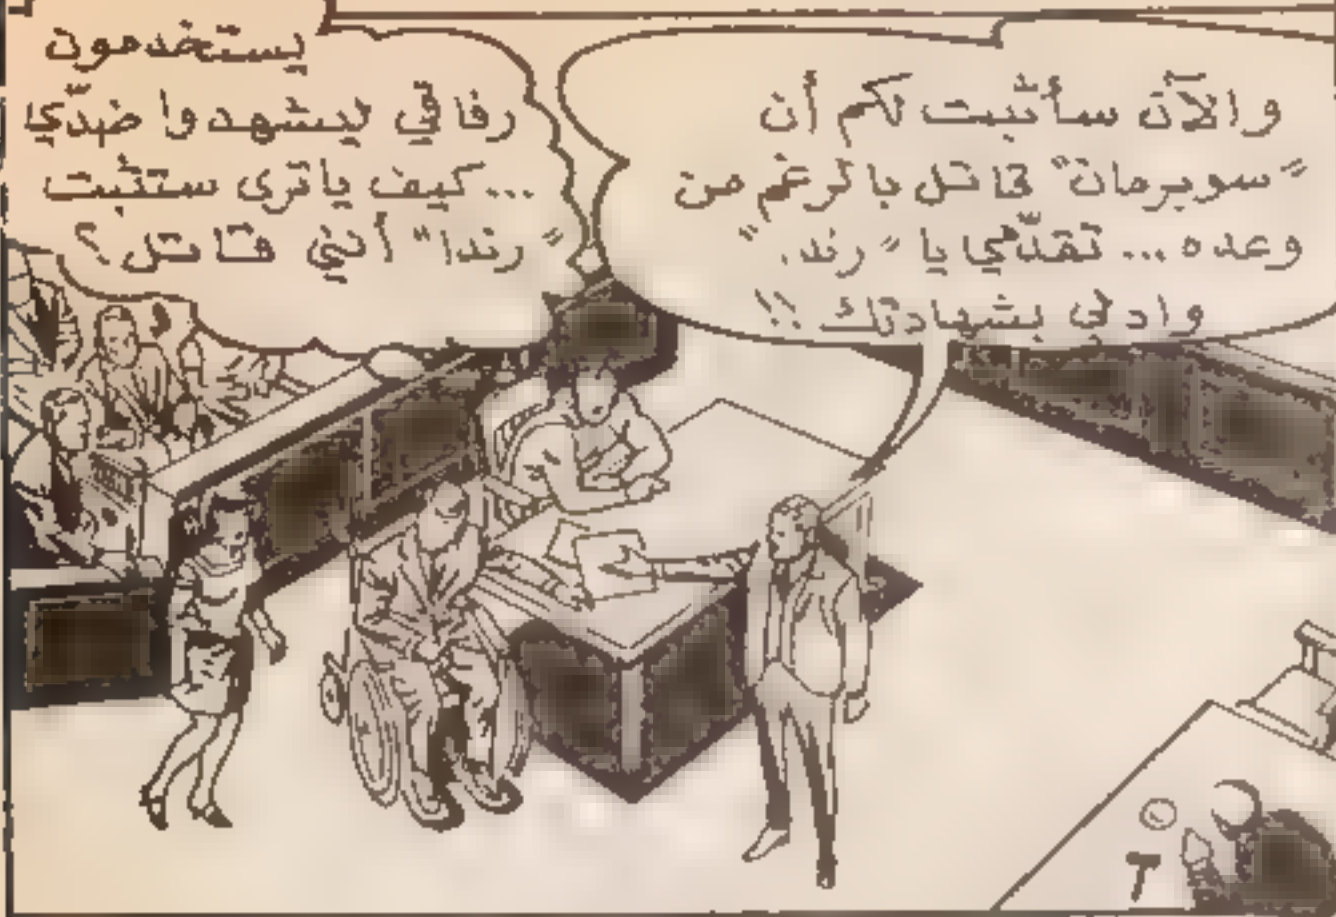 والآن سأثبت لكم أن
"سوبرمان" قاتل بالرغم من
وعده... تقدّمي يا "رندا"
وادلي بشهادتك !!
يستخدمون
رفاقي ليشهدوا ضدّي
...كيف ياترى ستثبت
"رندا" أنني قاتل؟